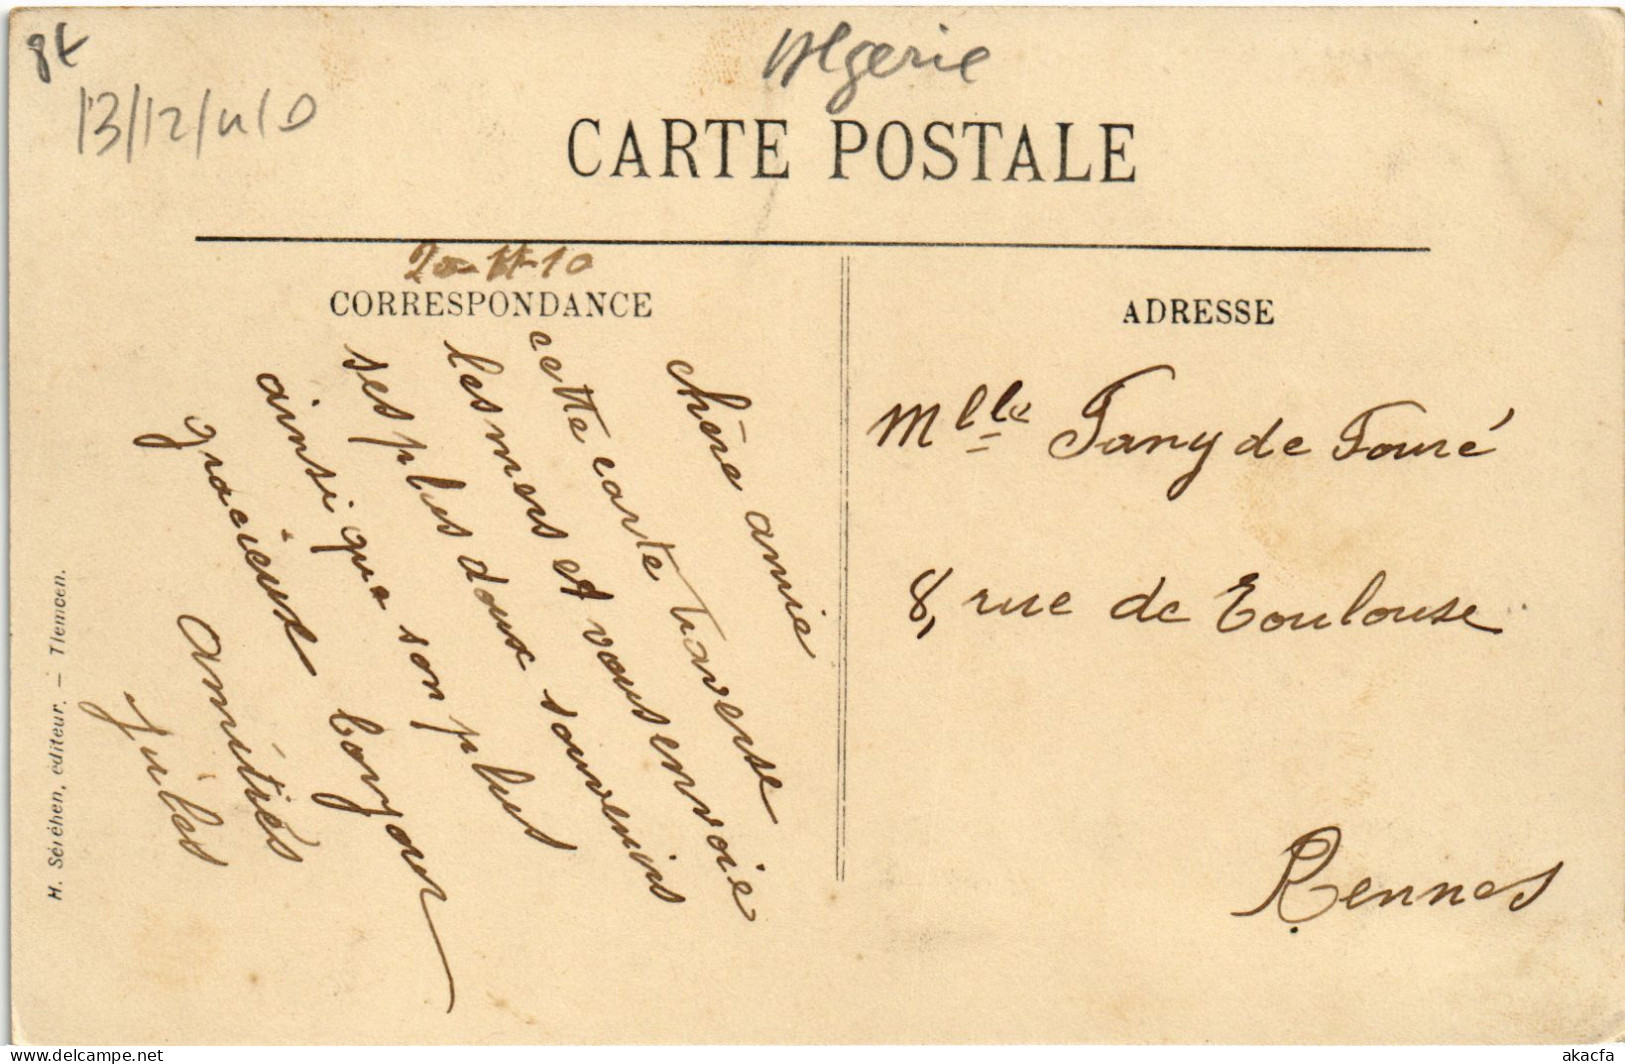 8t
Algerie
13/12/
CARTE POSTALE
20-11-10
CORRESPONDANCE
chère amie
cette carte traverse
les mers et vous envoie
ses plus doux souvenirs
ainsi que son plus
gracieux bonjour
amitiés
Jules
ADRESSE
Mlle Fany de Fouré
8, rue de Toulouse
Rennes
H. Séréhen, éditeur. — Tlemcen.
akacfa